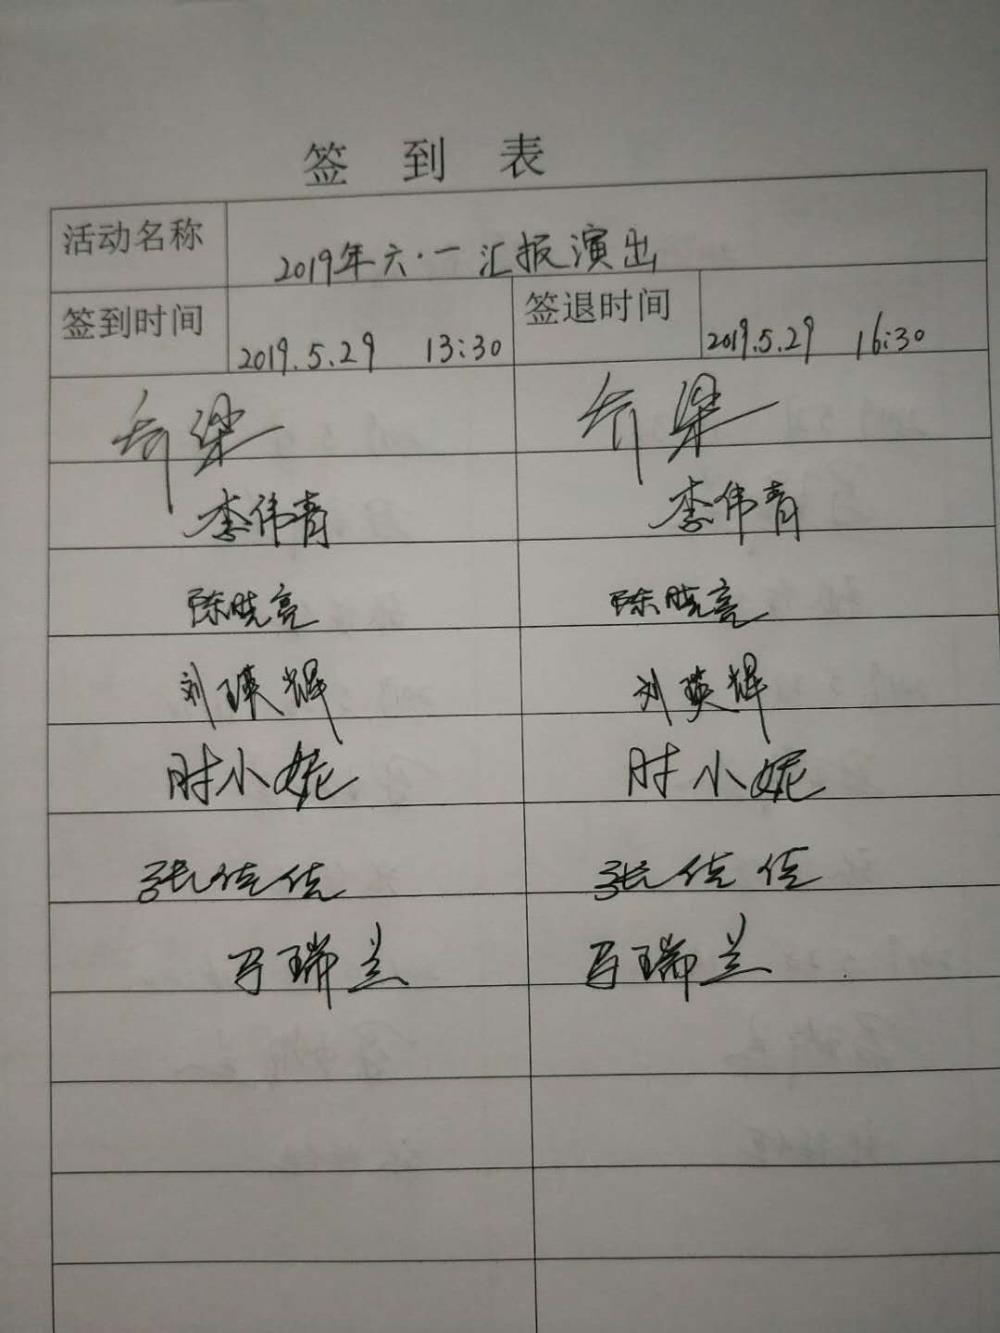 签到表
活动名称 2019年六·一汇报演出
签到时间 2019.5.29 13:30 签退时间 2019.5.29 16:30
乔梁 乔梁
李伟青 李伟青
陈晓亮 陈晓亮
刘瑛辉 刘瑛辉
时小妮 时小妮
张佳佳 张佳佳
马瑞兰 马瑞兰